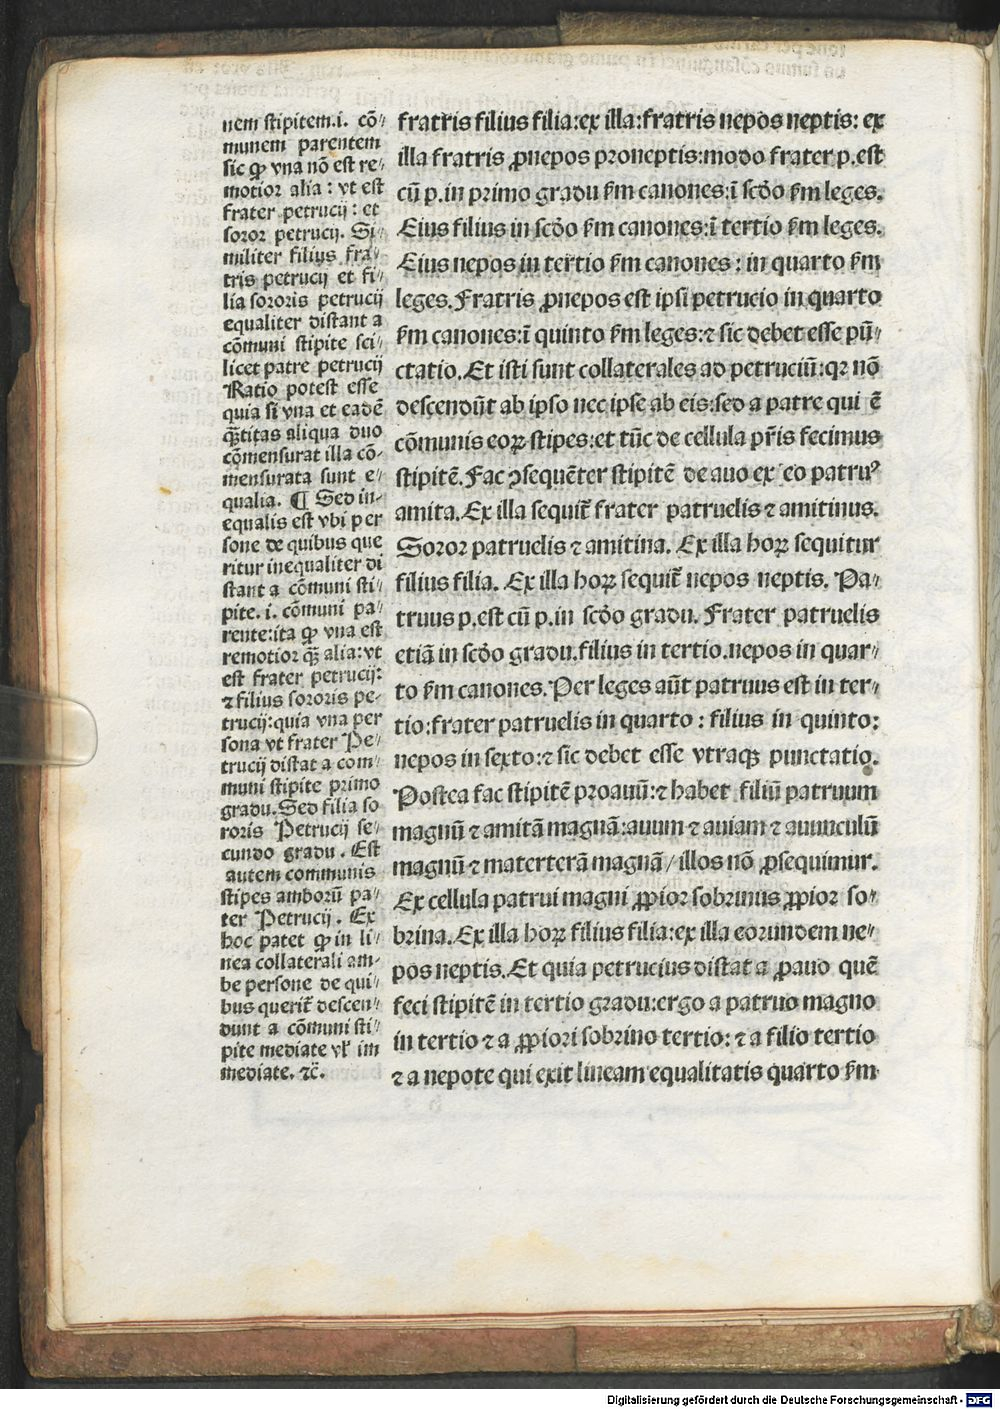 nem stipitem.i. cō⸗
munem parentem
sic ꝙ vna nō est re⸗
motior alia : vt est
frater petrucij : et
soror petrucij. Si⸗
militer filius fra⸗
tris petrucij et fi⸗
lia sororis petrucij
equaliter distant a
cōmuni stipite sci⸗
licet patre petrucij
Ratio potest esse
quia si vna et eadē
q̄ꝫtitas aliqua duo
cōmensurat illa cō⸗
mensurata sunt e⸗
qualia. ¶ Sed in⸗
equalis est vbi per
sone de quibus que
ritur inequaliter di
stant a cōmuni sti⸗
pite. i. cōmuni pa⸗
rente:ita ꝙ vna est
remotior q̄ꝫ alia:vt
est frater petrucij:
⁊ filius sororis pe⸗
trucij:quia vna per
sona vt frater Pe⸗
trucij distat a com⸗
muni stipite primo
gradu. Sed filia so
roris Petrucij se⸗
cundo gradu. Est
autem communis
stipes amborū pa⸗
ter Petrucij. Ex
hoc patet ꝙ in li⸗
nea collaterali am⸗
be persone de qui⸗
bus querit᷑ descen⸗
dunt a cōmuni sti⸗
pite mediate vl᷑ im
mediate. ⁊c̄.
fratris filius filia:ex illa:fratris nepos neptis: ex
illa fratris ꝓnepos proneptis:modo frater p.est
cū p.in primo gradu ẜm canones:ī scd̄o ẜm leges.
Eius filius in scd̄o ẜm canones:ī tertio ẜm leges.
Eius nepos in tertio ẜm canones : in quarto ẜm
leges. Fratris ꝓnepos est ipsi petrucio in quarto
ẜm canones:ī quinto ẜm leges:⁊ sic debet esse pū⸗
ctatio. Et isti sunt collaterales ad petruciū:qꝛ nō
descendūt ab ipso nec ipse ab eis:sed a patre qui ē
cōmunis eoꝝ stipes:et tūc de cellula pr̄is fecimus
stipitē. Fac ꝯsequēter stipitē de auo ex eo patruꝰ
amita. Ex illa sequit᷑ frater patruelis ⁊ amitinus.
Soror patruelis ⁊ amitina. Ex illa hoꝝ sequitur
filius filia. Ex illa hoꝝ sequit᷑ nepos neptis. Pa⸗
truus p.est cū p.in scd̄o gradu. Frater patruelis
etiā in scd̄o gradu.filius in tertio.nepos in quar⸗
to ẜm canones. Per leges aūt patruus est in ter⸗
tio:frater patruelis in quarto : filius in quinto:
nepos in sexto:⁊ sic debet esse vtraqꝫ punctatio.
Postea fac stipitē proauū:⁊ habet filiū patruum
magnū ⁊ amitā magnā:auum ⁊ auiam ⁊ auunculū
magnū ⁊ materterā magnā/illos nō ꝓsequimur.
Ex cellula patrui magni ꝓpior sobrinus ꝓpior so⸗
brina. Ex illa hoꝝ filius filia:ex illa eorundem ne⸗
pos neptis. Et quia petrucius distat a ꝓauo quē
feci stipitē in tertio gradu:ergo a patruo magno
in tertio ⁊ a ꝓpiori sobrino tertio: ⁊ a filio tertio
⁊ a nepote qui exit lineam equalitatis quarto ẜm
Digitalisierung gefördert durch die Deutsche Forschungsgemeinschaft - DFG